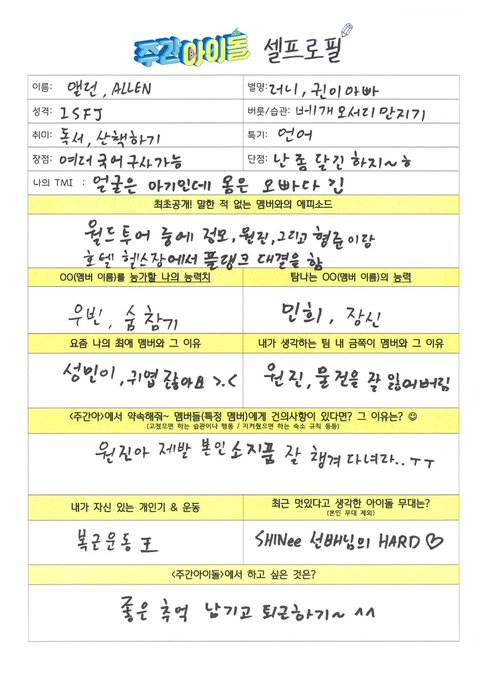 주간아이돌 셀프로필
이름: 앨런, ALLEN
별명: 러니, 귄이아빠
성격: ISFJ
버릇/습관: 베개 모서리 만지기
취미: 독서, 산책하기
특기: 언어
장점: 여러 국어 구사 가능
단점: 난 좀 달긴 하지~ㅎ
나의 TMI : 얼굴은 아기인데 몸은 오빠다 김
최초공개! 말한 적 없는 멤버와의 에피소드
월드투어 중에 정모, 원진, 그리고 형준이랑
호텔 헬스장에서 플랭크 대결을 함
OO(멤버 이름)를 능가할 나의 능력치
탐나는 OO(멤버 이름)의 능력
우빈, 숨 참기
민희, 장신
요즘 나의 최애 멤버와 그 이유
내가 생각하는 팀 내 금쪽이 멤버와 그 이유
성민이, 귀엽잖아요 >.<
원진, 물건을 잘 잃어버림
<주간아>에서 약속해줘~ 멤버들(특정 멤버)에게 건의사항이 있다면? 그 이유는? ☺
(고쳤으면 하는 습관이나 행동 / 지켜줬으면 하는 숙소 규칙 등등)
원진아 제발 본인 소지품 잘 챙겨 다녀라..ㅜㅜ
내가 자신 있는 개인기 & 운동
최근 멋있다고 생각한 아이돌 무대는?
(본인 무대 제외)
복근운동 王
SHINee 선배님의 HARD♡
<주간아이돌>에서 하고 싶은 것은?
좋은 추억 남기고 퇴근하기~ ^^